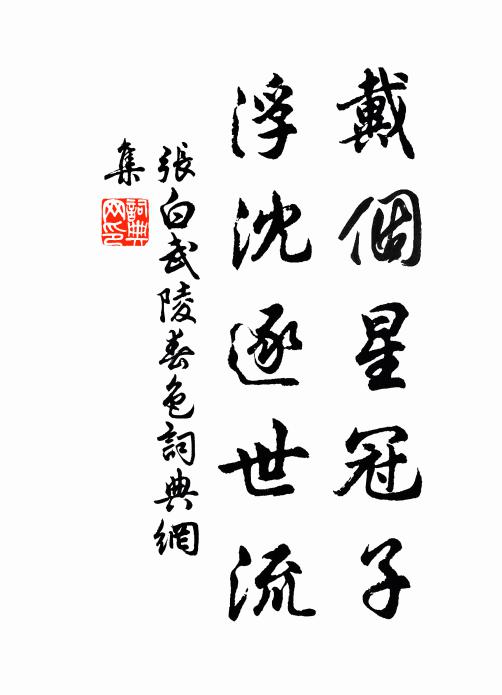 戴個星冠子
浮沈逐世流
張白武陵春色詞典網
集
詞典
网印